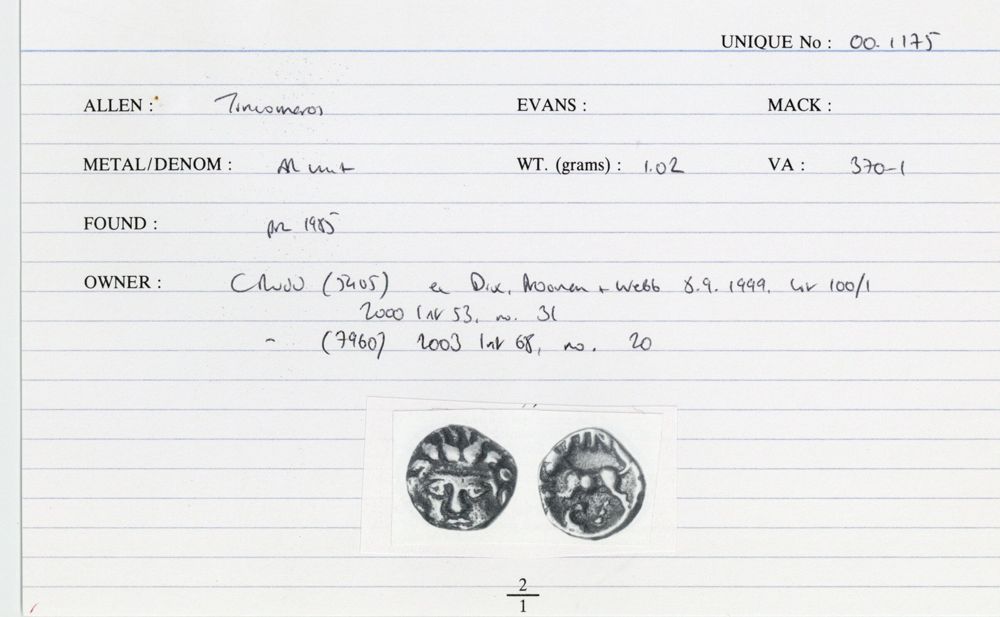 UNIQUE No : 00.1175
ALLEN : Tincomeros EVANS : MACK :
METAL/DENOM : AR unit WT. (grams) : 1.02 VA : 370-1
FOUND : pre 1985
OWNER : CRudd (5405) ex Dix, Noonan + Webb 8.9.1999, lot 100/1
2000 list 53, no. 31
(7960) 2003 list 68, no. 20
2
1